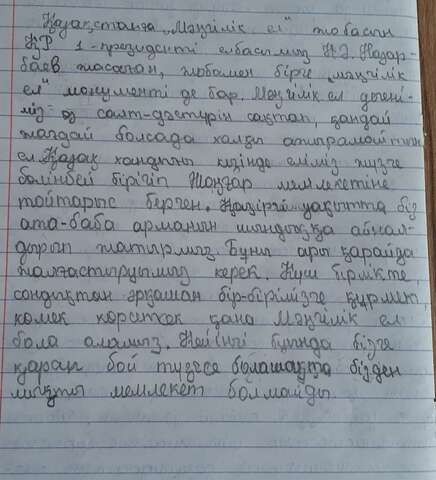 Қазақстанға „Мәңгілік ел" жобасын
ҚР 1-президенті елбасымыз Н.Ә. Назар-
баев жасаған, жобамен бірге „мәңгілік
ел" монументі де бар. Мәңгілік ел дегені-
міз - өз салт-дәстүрін сақтап, қандай
жағдай болсада халқы айырылмайтын
ел. Қазақ хандығы кезінде еліміз жүзге
бөлінбей бірігіп Жоңғар мемлекетіне
тойтарыс берген. Қазіргі уақытта біз
ата-баба арманын шындыққа айнал-
дырып жатырмыз. Бұны ары қарайда
жалғастыруымыз керек. Күш бірлікте,
сондықтан әрқашан бір-бірімізге құрмет,
көмек көрсетсек қана Мәңгілік ел
бола аламыз. Кейінгі буында бізге
қарап бой түзесе болашақта бізден
мықты мемлекет болмайды.